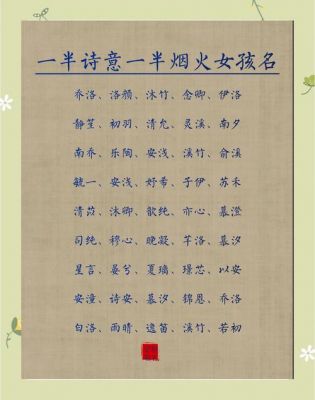 一半诗意一半烟火女孩名
乔洛、洛颜、沐竹、念卿、伊洛
静笙、初羽、清允、灵溪、南夕
南乔、乐陶、安浅、溪竹、俞溪
毓一、安浅、妤希、子伊、苏禾
清茂、沐卿、歆纯、亦心、慕澄
司纯、穆心、晚凝、芊洛、慕汐
星言、晏兮、夏璃、璟芯、以安
安潼、诗安、慕汐、锦恩、乔洛
白洛、雨晴、逸笛、溪竹、若初